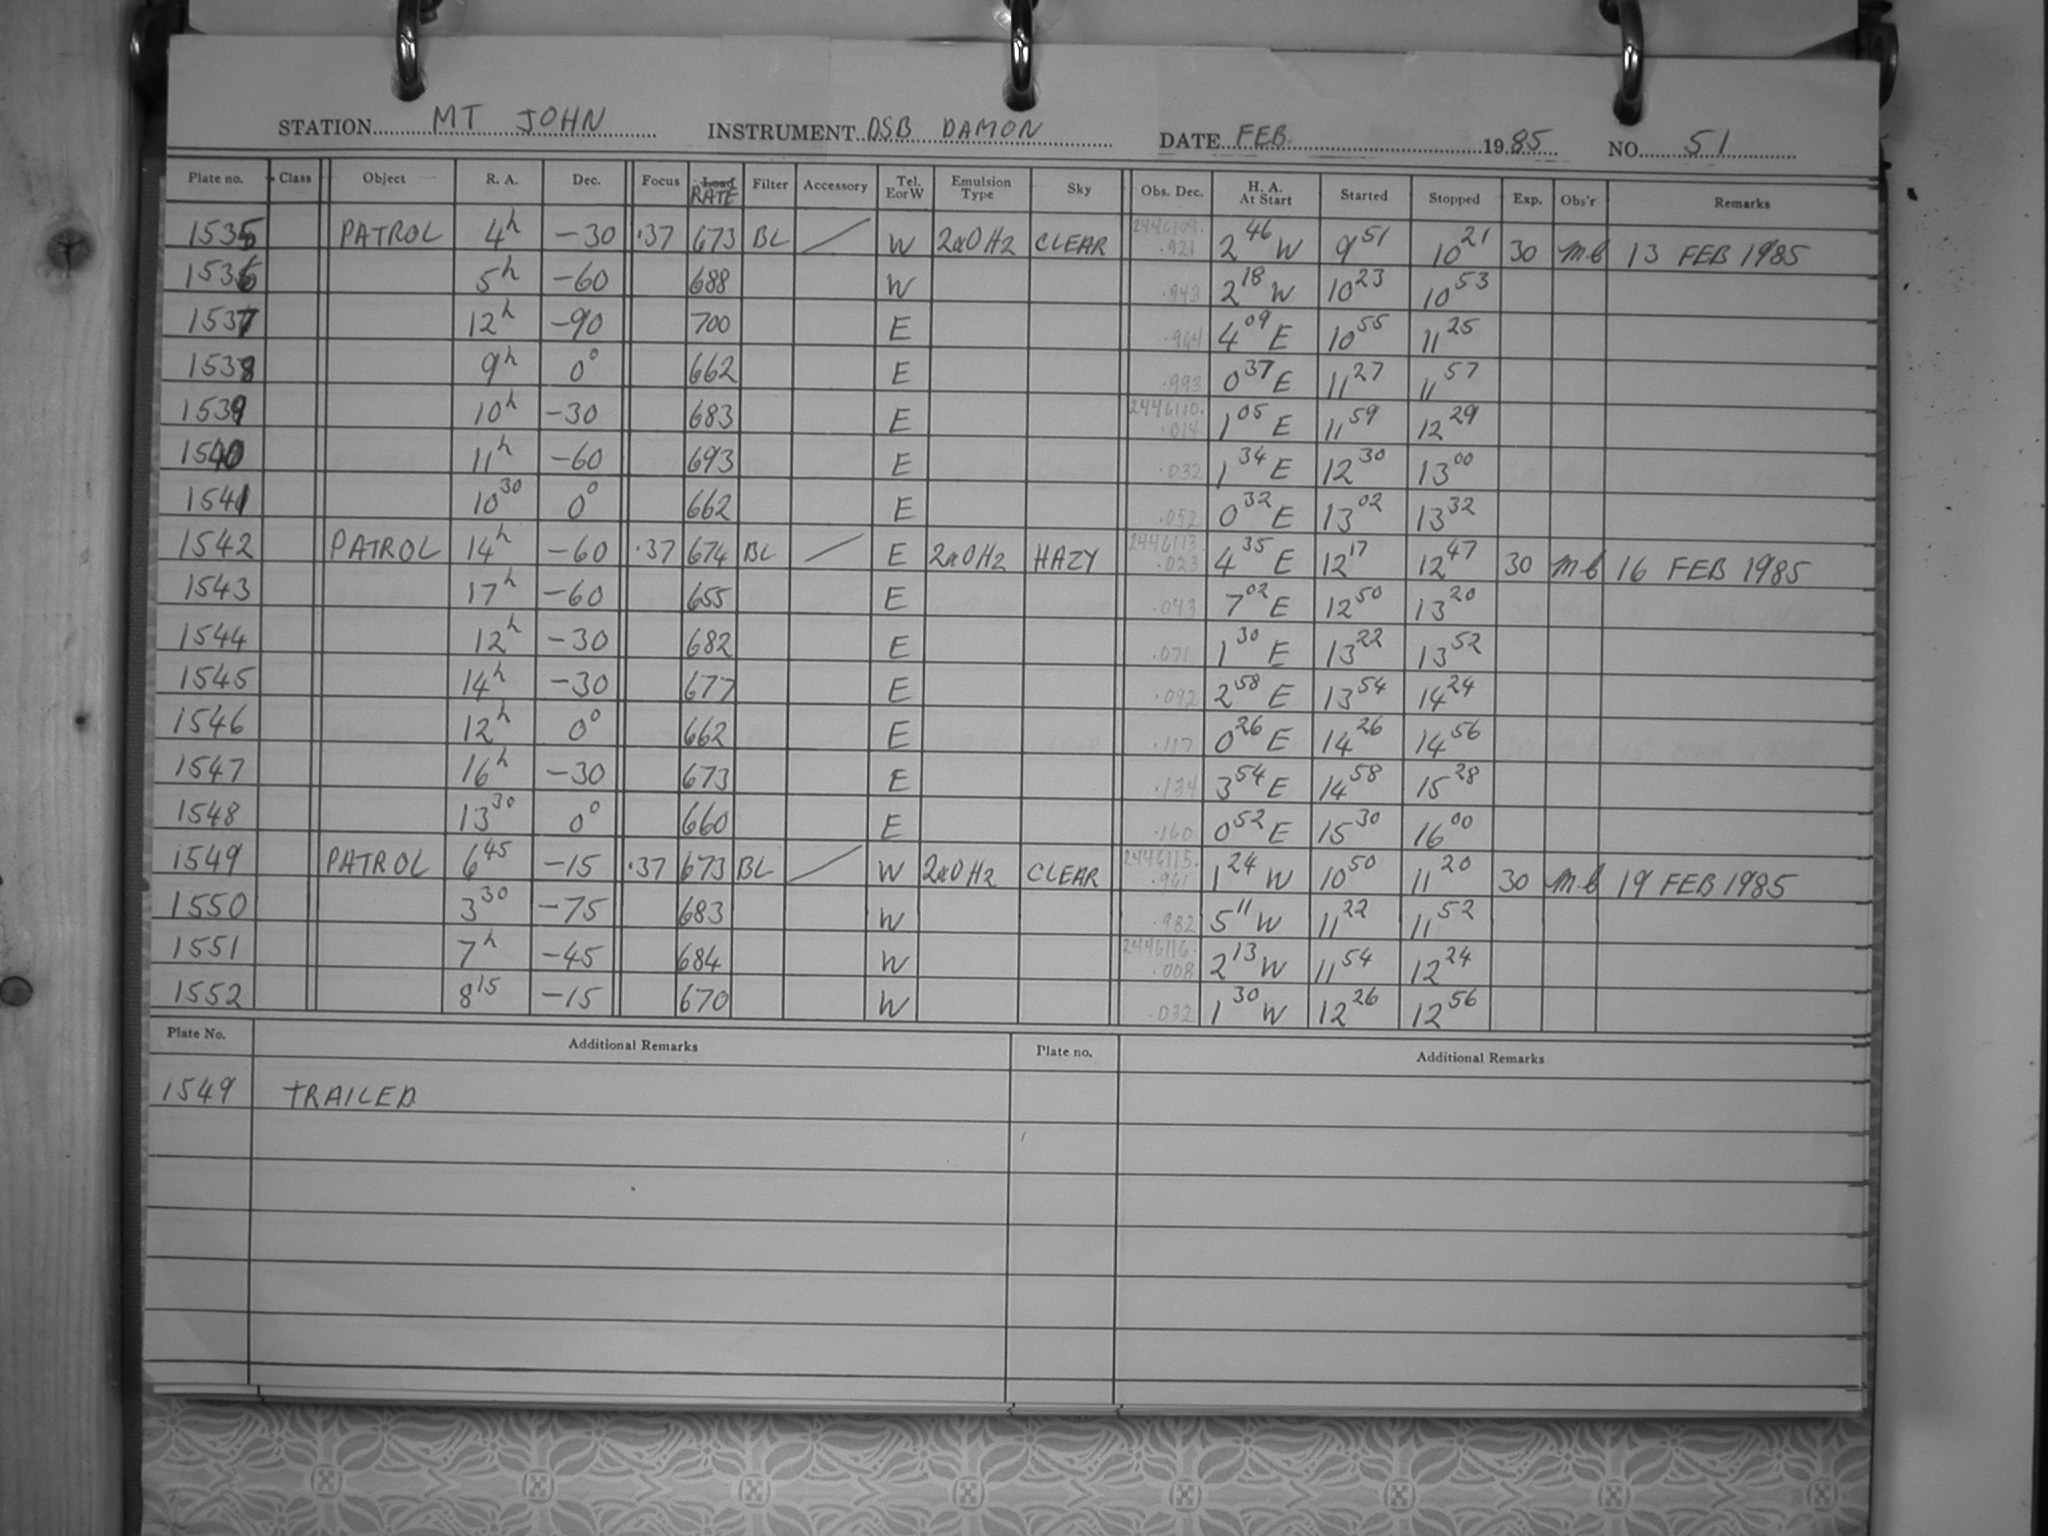 STATION MT JOHN INSTRUMENT DSB DAMON DATE FEB. 1985 NO. 51
Plate no. Class Object R. A. Dec. Focus Load RATE Filter Accessory Tel. E or W Emulsion Type Sky Obs. Dec. H. A. At Start Started Stopped Exp. Obs'r Remarks
1535 PATROL 4h -30 .37 673 BL / W 2aOHz CLEAR 2446109. .921 2 46 W 9 51 10 21 30 MB 13 FEB 1985
1536 5h -60 688 W .943 2 18 W 10 23 10 53
1537 12h -90 700 E .964 4 09 E 10 55 11 25
1538 9h 0° 662 E .993 0 37 E 11 27 11 57
1539 10h -30 683 E 2446110. .014 1 05 E 11 59 12 29
1540 11h -60 693 E .032 1 34 E 12 30 13 00
1541 10 30 0° 662 E .052 0 32 E 13 02 13 32
1542 PATROL 14h -60 .37 674 BL / E 2aOHz HAZY 2446113. .023 4 35 E 12 17 12 47 30 MB 16 FEB 1985
1543 17h -60 655 E .043 7 02 E 12 50 13 20
1544 12h -30 682 E .071 1 30 E 13 22 13 52
1545 14h -30 677 E .092 2 58 E 13 54 14 24
1546 12h 0° 662 E .117 0 26 E 14 26 14 56
1547 16h -30 673 E .134 3 54 E 14 58 15 28
1548 13 30 0° 660 E .160 0 52 E 15 30 16 00
1549 PATROL 6 45 -15 .37 673 BL / W 2aOHz CLEAR 2446115. .961 1 24 W 10 50 11 20 30 MB 19 FEB 1985
1550 3 30 -75 683 W .982 5 11 W 11 22 11 52
1551 7h -45 684 W 2446116. .008 2 13 W 11 54 12 24
1552 8 15 -15 670 W .032 1 30 W 12 26 12 56
Plate No. Additional Remarks Plate no. Additional Remarks
1549 TRAILED